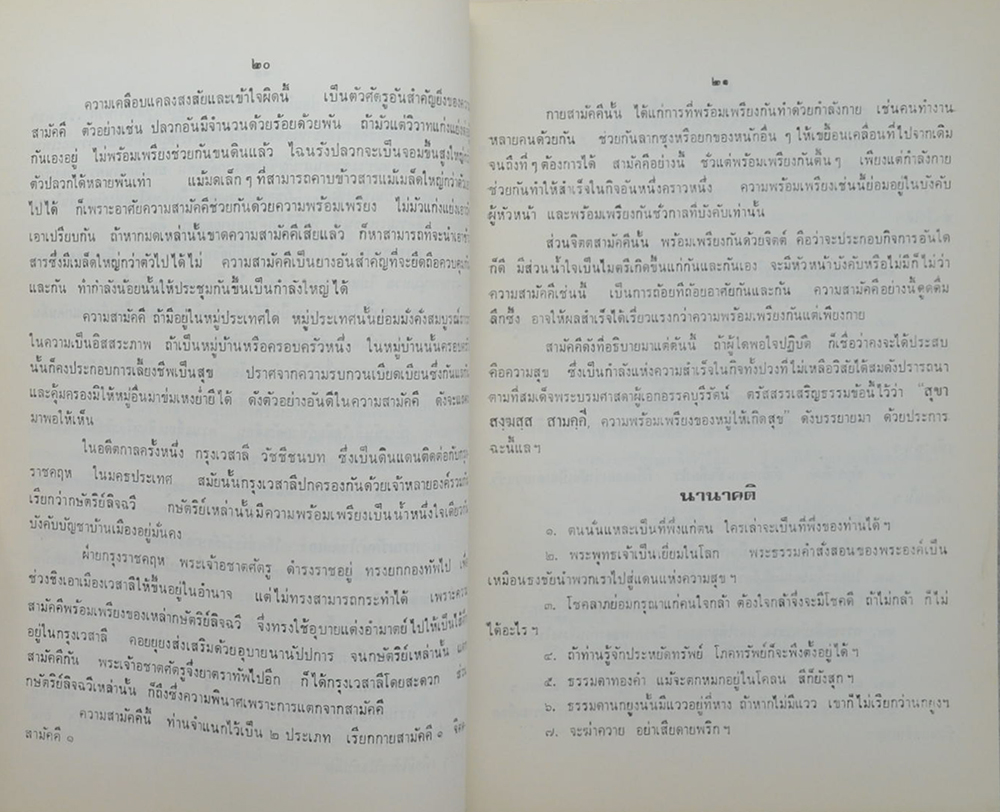 ๒๐
ความเคลือบแคลงสงสัยและเข้าใจผิดนี้ เป็นตัวศัตรูอันสำคัญยิ่งของ
สามัคคี ตัวอย่างเช่น ปลวกอันมีจำนวนด้วยร้อยด้วยพัน ถ้ามัวแต่วิวาทแก่งแย่ง
กันเองอยู่ ไม่พร้อมเพรียงช่วยกันขนดินแล้ว ไฉนรังปลวกจะเป็นจอมขึ้นสูงใหญ่
ตัวปลวกได้หลายพันเท่า แม้มดเล็ก ๆ ที่สามารถคาบข้าวสารแม้เมล็ดใหญ่กว่าตัว
ไปได้ ก็เพราะอาศัยความสามัคคีช่วยกันด้วยความพร้อมเพรียง ไม่มัวแก่งแย่ง
เอาเปรียบกัน ถ้าหากมดเหล่านั้นขาดความสามัคคีเสียแล้ว ก็หาสามารถที่จะนำเอา
สารซึ่งมีเมล็ดใหญ่กว่าตัวไปได้ไม่ ความสามัคคีเป็นยางอันสำคัญที่จะยึดถือควบคุม
และกัน ทำกำลังน้อยนั้นให้ประชุมกันขึ้นเป็นกำลังใหญ่ได้
ความสามัคคี ถ้ามีอยู่ในหมู่ประเทศใด หมู่ประเทศนั้นย่อมมั่งคั่งสมบูรณ์
ในความเป็นอิสสระภาพ ถ้าเป็นหมู่บ้านหรือครอบครัวหนึ่ง ในหมู่บ้านนั้นครอบครัว
นั้นก็คงประกอบการเลี้ยงชีพเป็นสุข ปราศจากความรบกวนเบียดเบียนซึ่งกัน
และคุ้มครองมิให้หมู่อื่นมาข่มเหงย่ำยีได้ ดังตัวอย่างอันดีในความสามัคคี ดังจะ
มาพอให้เห็น
ในอดีตกาลครั้งหนึ่ง กรุงเวสาลี วัชชีชนบท ซึ่งเป็นดินแดนติดต่อกับ
ราชคฤห ในมคธประเทศ สมัยนั้นกรุงเวสาลีปกครองกันด้วยเจ้าหลายองค์รวม
เรียกว่ากษัตริย์ลิจฉวี กษัตริย์เหล่านั้นมีความพร้อมเพรียงเป็นน้ำหนึ่งใจเดียว
บังคับบัญชาบ้านเมืองอยู่มั่นคง
ฝ่ายกรุงราชคฤห พระเจ้าอชาตศัตรู ดำรงราชอยู่ ทรงยกกองทัพไป
ช่วงชิงเอาเมืองเวสาลีให้ขึ้นอยู่ในอำนาจ แต่ไม่ทรงสามารถกระทำได้ เพราะ
สามัคคีพร้อมเพรียงของเหล่ากษัตริย์ลิจฉวี จึงทรงใช้อุบายแต่งอำมาตย์ไปให้เป็น
อยู่ในกรุงเวสาลี คอยยุยงส่งเสริมด้วยอุบายนานัปปการ จนกษัตริย์เหล่านั้น
สามัคคีกัน พระเจ้าอชาตศัตรูจึงยาตราทัพไปอีก ก็ได้กรุงเวสาลีโดยสะดวก
กษัตริย์ลิจฉวีเหล่านั้น ก็ถึงซึ่งความพินาศเพราะการแตกจากสามัคคี
ความสามัคคีนี้ ท่านจำแนกไว้เป็น ๒ ประเภท เรียกกายสามัคคี ๑
สามัคคี ๑
๒๑
กายสามัคคีนั้น ได้แก่การที่พร้อมเพรียงกันทำด้วยกำลังกาย เช่นคนทำงาน
หลายคนด้วยกัน ช่วยกันลากซุงหรือยกของหนักอื่น ๆ ให้เขยื้อนเคลื่อนที่ไปจากเดิม
จนถึงที่ ๆ ต้องการได้ สามัคคีอย่างนี้ ชั่วแต่พร้อมเพรียงกันตื้น ๆ เพียงแต่กำลังกาย
ช่วยกันทำให้สำเร็จในกิจอันหนึ่งคราวหนึ่ง ความพร้อมเพรียงเช่นนี้ย่อมอยู่ในบังคับ
ผู้หัวหน้า และพร้อมเพรียงกันชั่วกาลที่บังคับเท่านั้น
ส่วนจิตตสามัคคีนั้น พร้อมเพรียงกันด้วยจิตต์ คือว่าจะประกอบกิจการอันใด
ก็ดี มีส่วนน้ำใจเป็นไมตรีเกิดขึ้นแก่กันและกันเอง จะมีหัวหน้าบังคับหรือไม่มีก็ไม่ว่า
ความสามัคคีเช่นนี้ เป็นการถ้อยทีถ้อยอาศัยกันและกัน ความสามัคคีอย่างนี้ดูดดื่ม
ลึกซึ้ง อาจให้ผลสำเร็จได้เรี่ยวแรงกว่าความพร้อมเพรียงกันแต่เพียงกาย
สามัคคีดังที่อธิบายมาแต่ต้นนี้ ถ้าผู้ใดพอใจปฏิบัติ ก็เชื่อว่าคงจะได้ประสบ
คือความสุข ซึ่งเป็นกำลังแห่งความสำเร็จในกิจทั้งปวงที่ไม่เหลือวิสัยได้สมดังปรารถนา
ตามที่สมเด็จพระบรมศาสดาผู้เอกอรรคบุรีรัตน์ ตรัสสรรเสริญธรรมข้อนี้ไว้ว่า “สุขา
สงฺฆสฺส สามคฺคี, ความพร้อมเพรียงของหมู่ให้เกิดสุข” ดังบรรยายมา ด้วยประการ
ฉะนี้แล ฯ
นานาคติ
๑. ตนนั่นแหละเป็นที่พึ่งแก่ตน ใครเล่าจะเป็นที่พึ่งของท่านได้ ฯ
๒. พระพุทธเจ้าเป็นเยี่ยมในโลก พระธรรมคำสั่งสอนของพระองค์เป็น
เหมือนธงชัยนำพวกเราไปสู่แดนแห่งความสุข ฯ
๓. โชคลาภย่อมกรุณาแก่คนใจกล้า ต้องใจกล้าจึงจะมีโชคดี ถ้าไม่กล้า ก็ไม่
ได้อะไร ฯ
๔. ถ้าท่านรู้จักประหยัดทรัพย์ โภคทรัพย์ก็จะพึงตั้งอยู่ได้ ฯ
๕. ธรรมดาทองคำ แม้จะตกหมกอยู่ในโคลน สีก็ยังสุก ฯ
๖. ธรรมดานกยูงนั้นมีแววอยู่ที่หาง ถ้าหากไม่มีแวว เขาก็ไม่เรียกว่านกยูง ฯ
๗. จะฆ่าควาย อย่าเสียดายพริก ฯ